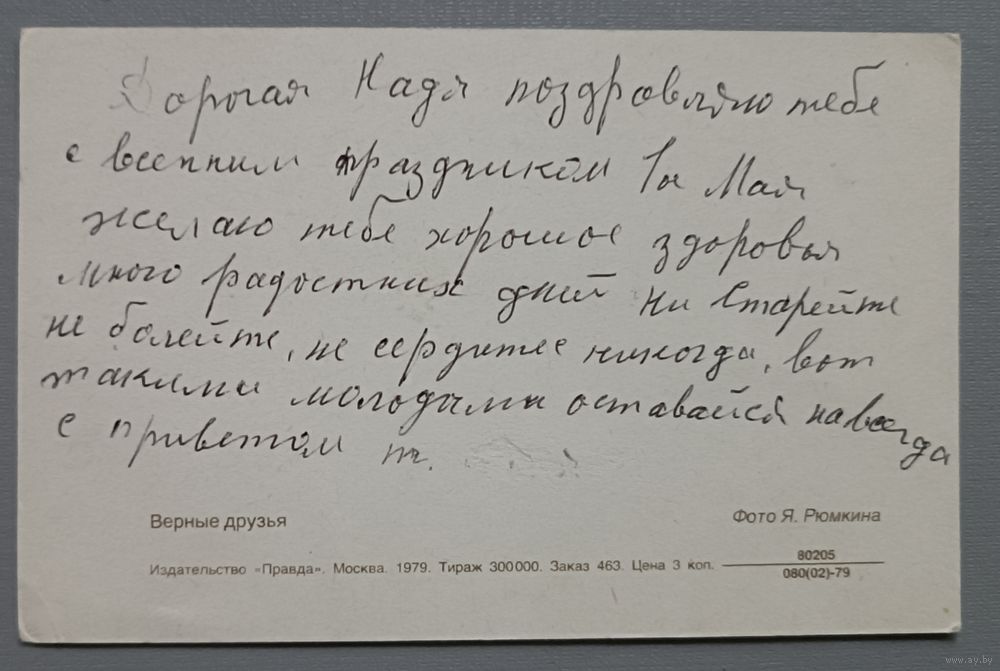 Дорогая Надя поздровляю тебе
с весенним праздником 1ы Мая
желаю тебе хорошое здоровья
много радостних дней ни старейте
не болейте, не сердитесе никогда, вот
такими молодыми оставайся навсегда
с приветом т.
Верные друзья
Фото Я. Рюмкина
Издательство «Правда». Москва. 1979. Тираж 300000. Заказ 463. Цена 3 коп.
80205
080(02)-79
www.ay.by